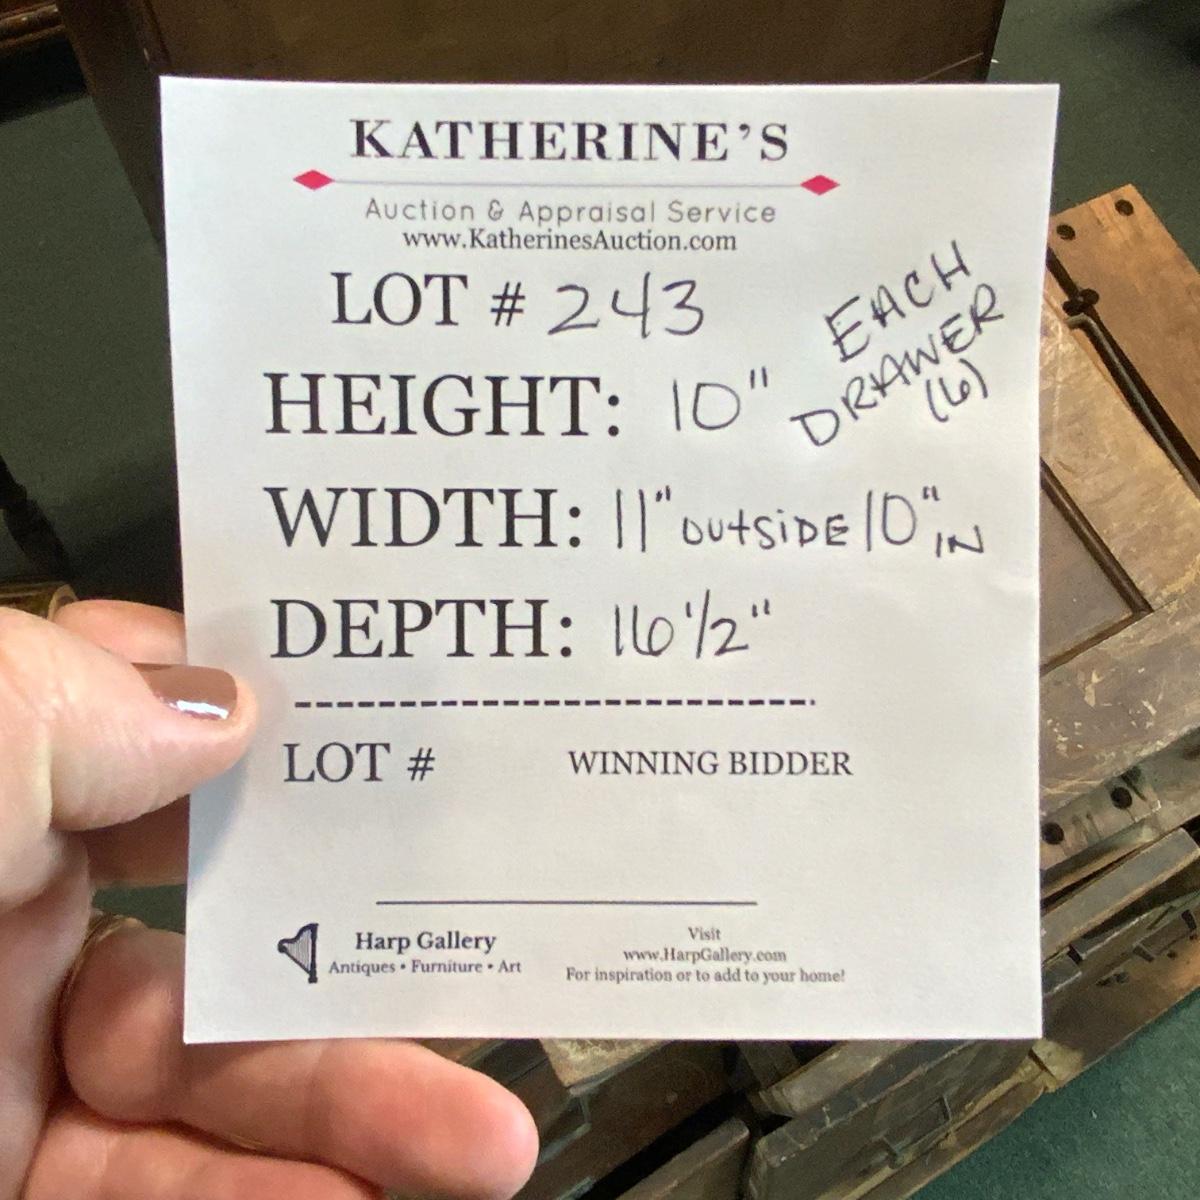 KATHERINE'S
Auction & Appraisal Service
www.KatherinesAuction.com
LOT # 243
EACH
DRAWER
(6)
HEIGHT: 10"
WIDTH: 11" OUTSIDE 10" IN
DEPTH: 16 1/2"
LOT # WINNING BIDDER
Harp Gallery
Antiques • Furniture • Art
Visit
www.HarpGallery.com
For inspiration or to add to your home!